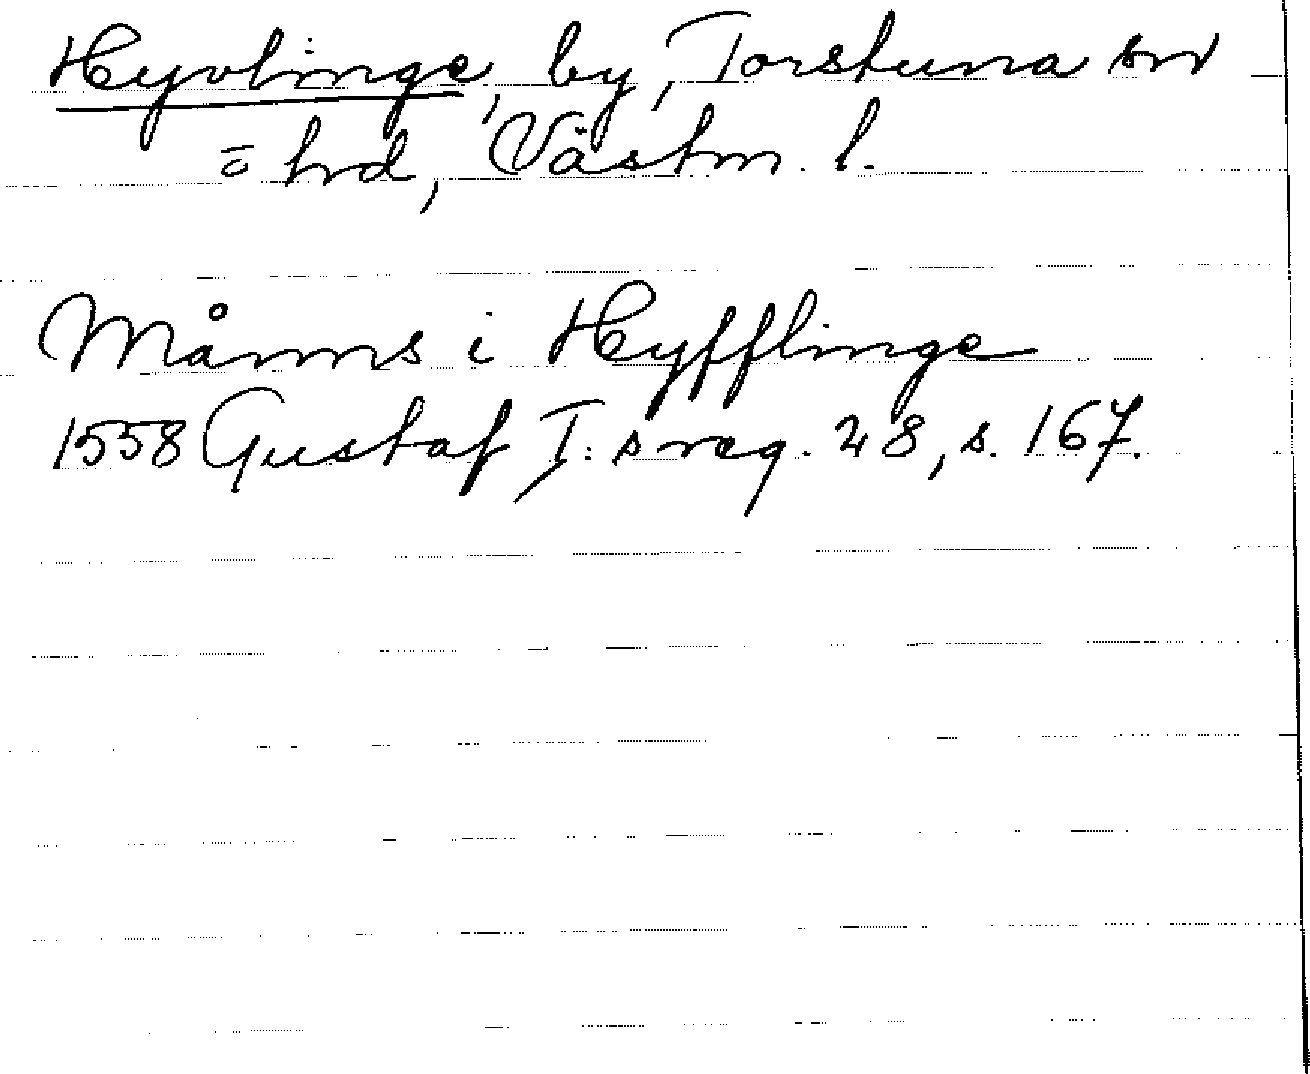 Hyvlinge, by, Torstuna sn
o hd, Västm. l.
Måns i Hyfflinge
1558 Gustaf I:s reg. 28, s. 167.